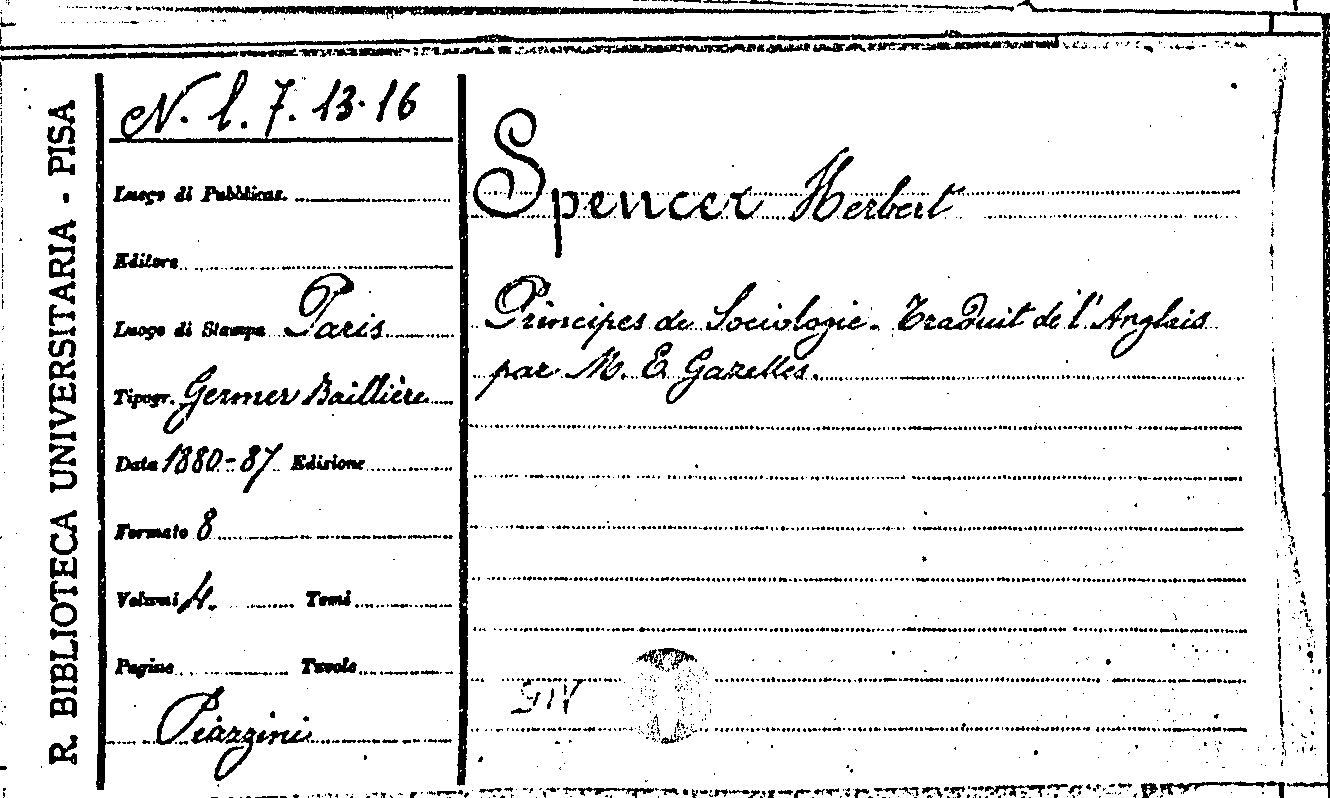 R. BIBLIOTECA UNIVERSITARIA - PISA
N. l. 7. 13-16
Luogo di Pubblicaz.
Editore
Luogo di Stampa Paris
Tipogr. Germer Baillière
Data 1880-87 Edizione
Formato 8
Volumi 4. Tomi
Pagine Tavole
Piazzini
Spencer Herbert
Principes de Sociologie. Traduit de l'Anglais
par M. E. Gazelles.